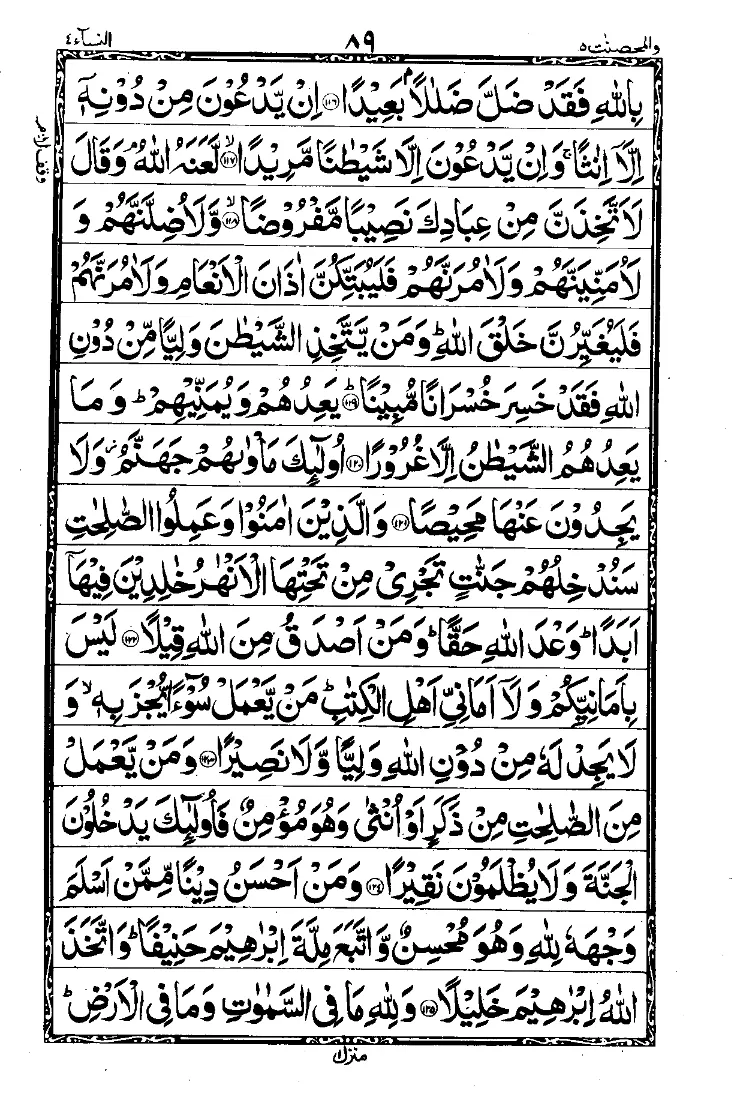 والمحصنت ٥
٨٩
النسآء ٤
بِاللّٰهِ فَقَدْ ضَلَّ ضَلٰلًاۢ بَعِيْدًا ﴿١١٦﴾ اِنْ يَّدْعُوْنَ مِنْ دُوْنِهٖۤ
اِلَّاۤ اِنٰثًا ۚ وَاِنْ يَّدْعُوْنَ اِلَّا شَيْطٰنًا مَّرِيْدًا ۙ﴿١١٧﴾ لَّعَنَهُ اللّٰهُ ۘ وَقَالَ
وقف لازم
لَاَتَّخِذَنَّ مِنْ عِبَادِكَ نَصِيْبًا مَّفْرُوْضًا ۙ﴿١١٨﴾ وَّلَاُضِلَّنَّهُمْ وَ
لَاُمَنِّيَنَّهُمْ وَلَاٰمُرَنَّهُمْ فَلَيُبَتِّكُنَّ اٰذَانَ الْاَنْعَامِ وَلَاٰمُرَنَّهُمْ
فَلَيُغَيِّرُنَّ خَلْقَ اللّٰهِ ؕ وَمَنْ يَّتَّخِذِ الشَّيْطٰنَ وَلِيًّا مِّنْ دُوْنِ
اللّٰهِ فَقَدْ خَسِرَ خُسْرَانًا مُّبِيْنًا ؕ﴿١١٩﴾ يَعِدُهُمْ وَيُمَنِّيْهِمْ ؕ وَمَا
يَعِدُهُمُ الشَّيْطٰنُ اِلَّا غُرُوْرًا ﴿١٢٠﴾ اُولٰٓئِكَ مَاْوٰىهُمْ جَهَنَّمُ ؗ وَلَا
يَجِدُوْنَ عَنْهَا مَحِيْصًا ﴿١٢١﴾ وَالَّذِيْنَ اٰمَنُوْا وَعَمِلُوا الصّٰلِحٰتِ
سَنُدْخِلُهُمْ جَنّٰتٍ تَجْرِيْ مِنْ تَحْتِهَا الْاَنْهٰرُ خٰلِدِيْنَ فِيْهَاۤ
اَبَدًا ؕ وَعْدَ اللّٰهِ حَقًّا ؕ وَمَنْ اَصْدَقُ مِنَ اللّٰهِ قِيْلًا ﴿١٢٢﴾ لَيْسَ
بِاَمَانِيِّكُمْ وَلَاۤ اَمَانِيِّ اَهْلِ الْكِتٰبِ ؕ مَنْ يَّعْمَلْ سُوْٓءًا يُّجْزَ بِهٖ ۙ وَ
لَا يَجِدْ لَهٗ مِنْ دُوْنِ اللّٰهِ وَلِيًّا وَّلَا نَصِيْرًا ﴿١٢٣﴾ وَمَنْ يَّعْمَلْ
مِنَ الصّٰلِحٰتِ مِنْ ذَكَرٍ اَوْ اُنْثٰى وَهُوَ مُؤْمِنٌ فَاُولٰٓئِكَ يَدْخُلُوْنَ
الْجَنَّةَ وَلَا يُظْلَمُوْنَ نَقِيْرًا ﴿١٢٤﴾ وَمَنْ اَحْسَنُ دِيْنًا مِّمَّنْ اَسْلَمَ
وَجْهَهٗ لِلّٰهِ وَهُوَ مُحْسِنٌ وَّاتَّبَعَ مِلَّةَ اِبْرٰهِيْمَ حَنِيْفًا ؕ وَاتَّخَذَ
اللّٰهُ اِبْرٰهِيْمَ خَلِيْلًا ﴿١٢٥﴾ وَلِلّٰهِ مَا فِي السَّمٰوٰتِ وَمَا فِي الْاَرْضِ ؕ
منزل ١